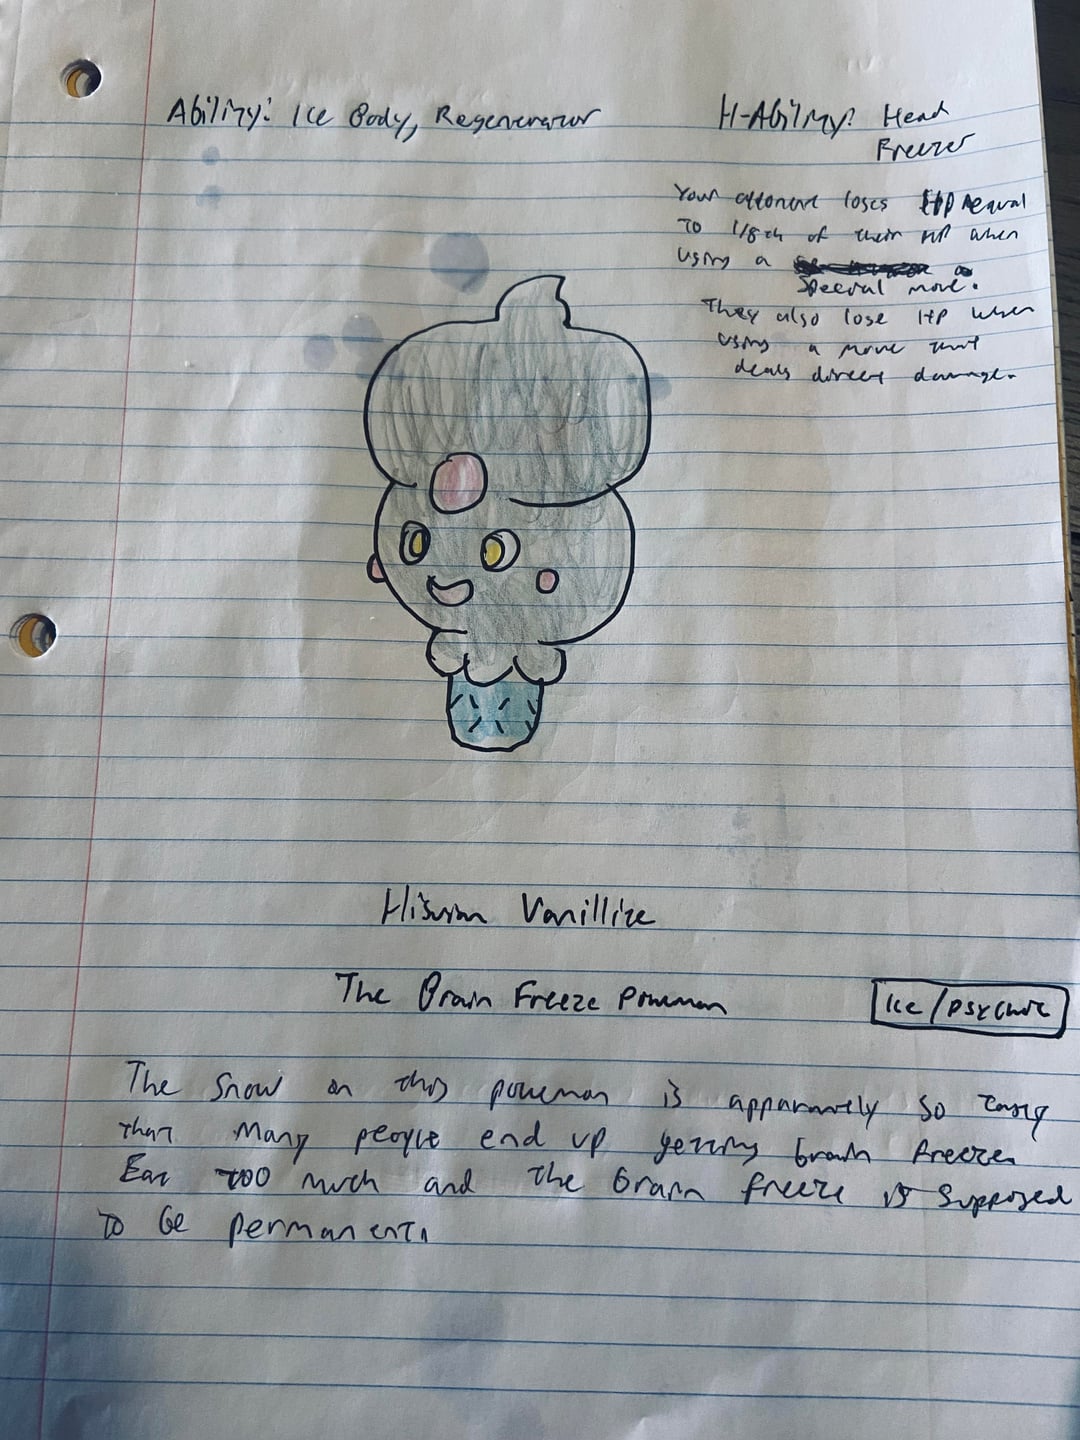 Ability: Ice Body, Regenerator
H-Ability: Head
Freezer
Your opponent loses HP equal
to 1/8th of their HP when
using a
special move.
They also lose HP when
using a move that
deals direct damage.
Hisuian Vanillite
The Brain Freeze Pokemon
Ice/Psychic
The snow on this pokemon is apparantely so tasty
that many people end up getting brain freeze.
Eat too much and the brain freeze is supposed
to be permanent.